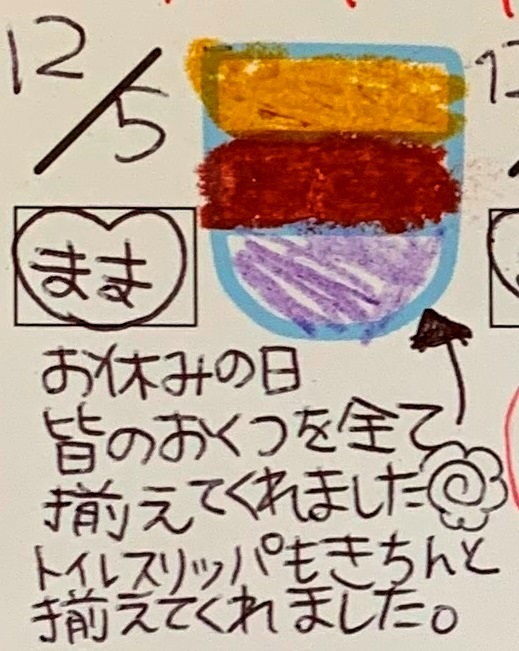 12/5
まま
お休みの日
皆のおくつを全て
揃えてくれました
トイレスリッパもきちんと
揃えてくれました。